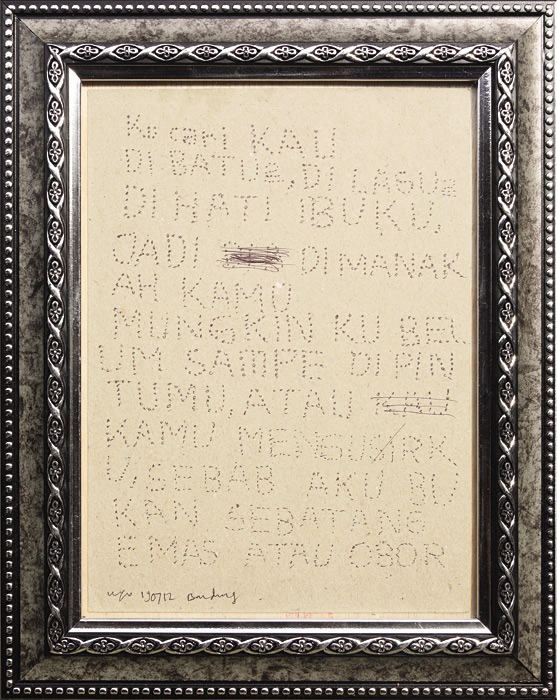 Ku cari KAU
DI BATU2, DI LAGU2
DI HATI IBUKU,
JADI DIMANAK
AH KAMU
MUNGKIN KU BEL
UM SAMPE DI PIN
TUMU, ATAU
KAMU MENGUSIRK
U, SEBAB AKU BU
KAN SEBATANG
EMAS ATAU OBOR
Bandung